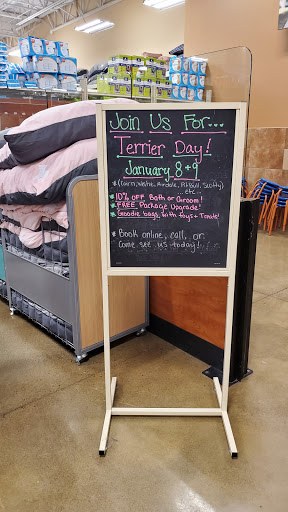 Join Us For...
Terrier Day!
January 8+9
*(Cairn, Westie, Airdale, Pitbull, Scotty)
etc...
*10% OFF Bath or Groom!
*FREE Package Upgrade!
*Goodie bags, with toys + Treats!
* Book online, call, or
Come see us today!